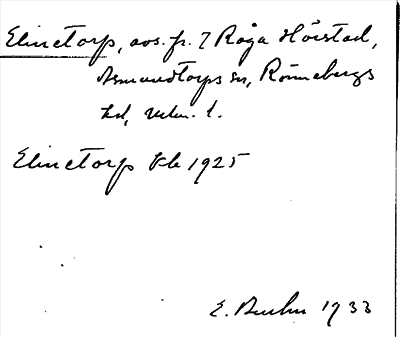 Elinetorp, avs. fr. 7 Råga Hörstad,
Asmundtorps sn, Rönnebergs
hd, Malm. l.
Elinetorp Kb 1925
E. 1933